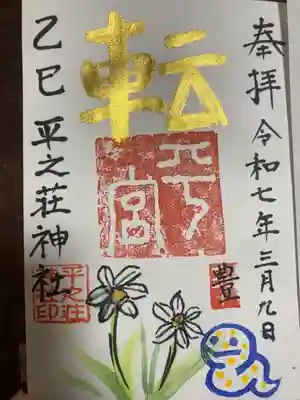 奉拝 令和七年三月九日
転
豊
乙巳 平之荘神社
平之荘印